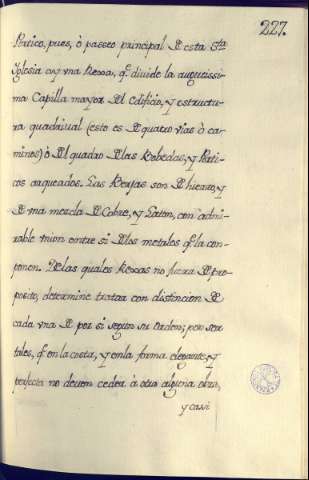 227.
Portico, pues, ò passeo principal de esta S.ta
Iglesia ay vna Rexa, q.e divide la augustissi-
ma Capilla mayor del edificio, y estructu-
ra quadriuial (esto es de quatro vias ò ca-
minos) ò del quadro de las Bobedas, y Porti-
cos arqueados. Las Rexas son de hierro, y
de vna mezcla de Cobre, y Laton, con admi-
rable vnion entre si de los metales q.e la com-
ponen. De las quales Rexas no fuera de pro-
posito, determine tratar con distincion de
cada vna de por si segun su orden; por ser
tales, q.e en la costa, y en la forma elegante, y
perfecta no deuen ceder à otra alguna obra,
y casi